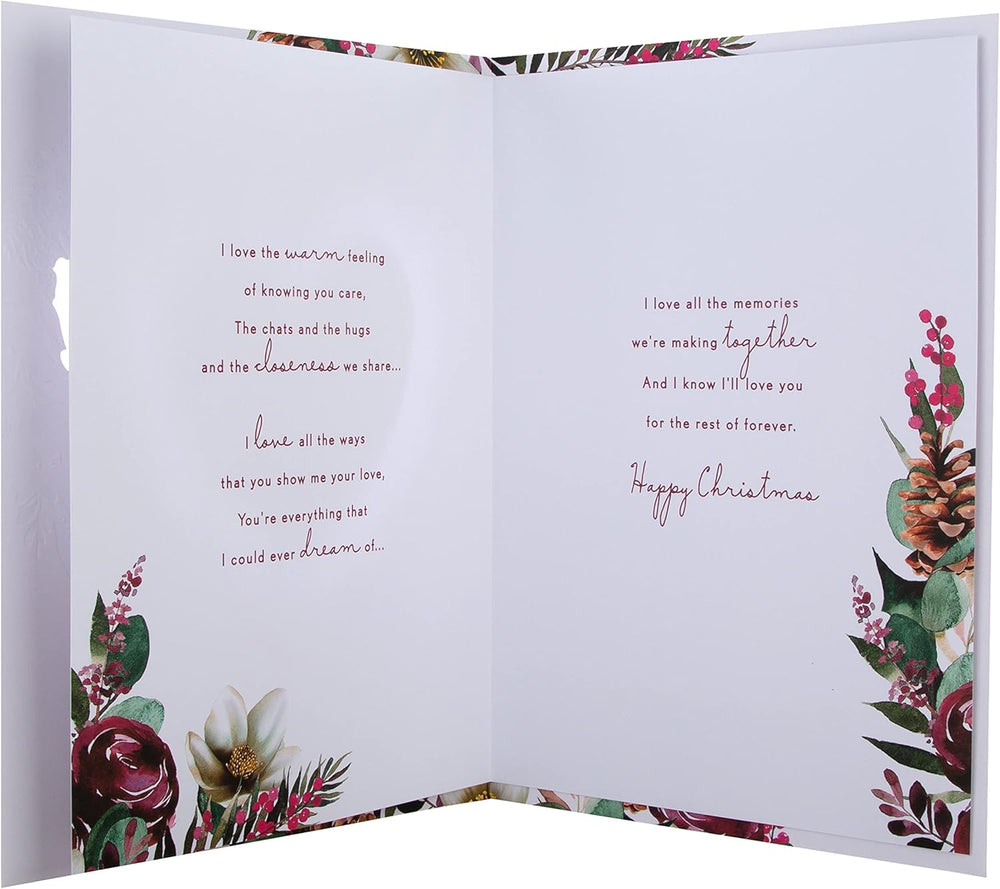 I love the warm feeling
of knowing you care,
The chats and the hugs
and the closeness we share...
I love all the ways
that you show me your love,
You're everything that
I could ever dream of...
I love all the memories
we're making together
And I know I'll love you
for the rest of forever.
Happy Christmas